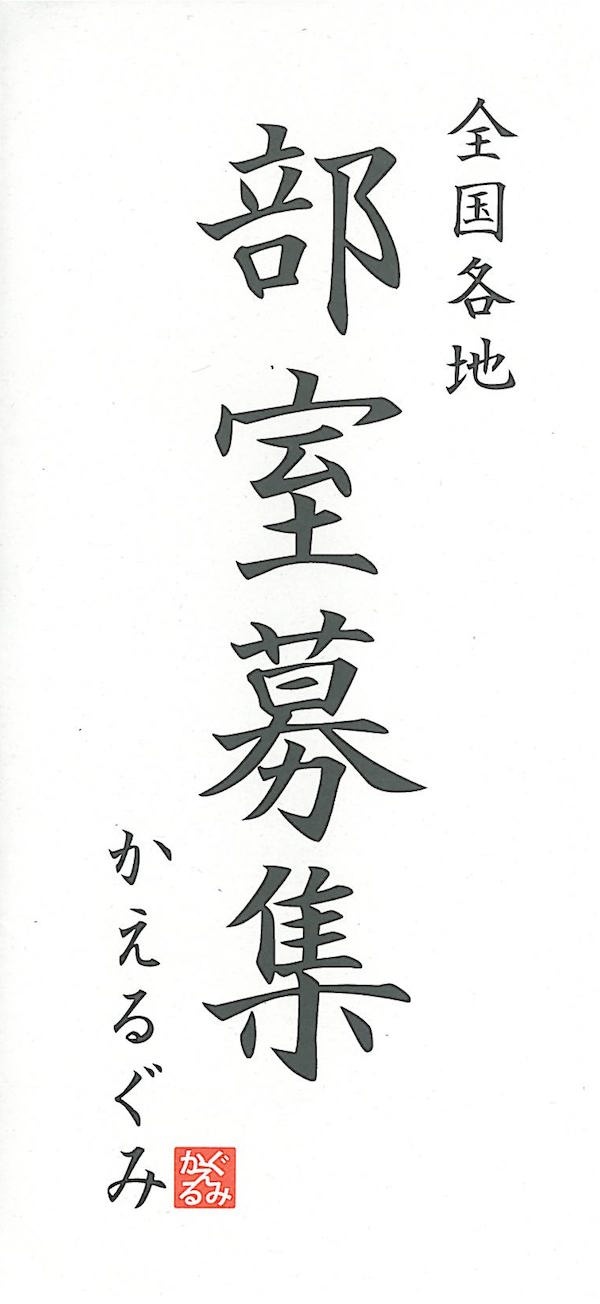 全国各地
部室募集
かえるぐみ
かえるぐみ